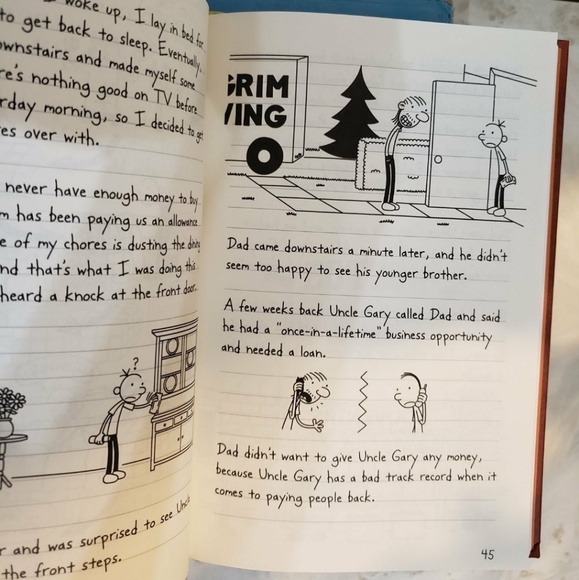 woke up, I lay in bed for
to get back to sleep. Eventually,
downstairs and made myself some
there's nothing good on TV before
morning, so I decided to get
over with.
never have enough money to buy
has been paying us an allowance
of my chores is dusting the dining
and that's what I was doing this
heard a knock at the front door.
?
and was surprised to see Uncle
the front steps.
GRIM
VING
Dad came downstairs a minute later, and he didn't
seem too happy to see his younger brother.
A few weeks back Uncle Gary called Dad and said
he had a "once-in-a-lifetime" business opportunity
and needed a loan.
Dad didn't want to give Uncle Gary any money,
because Uncle Gary has a bad track record when it
comes to paying people back.
45